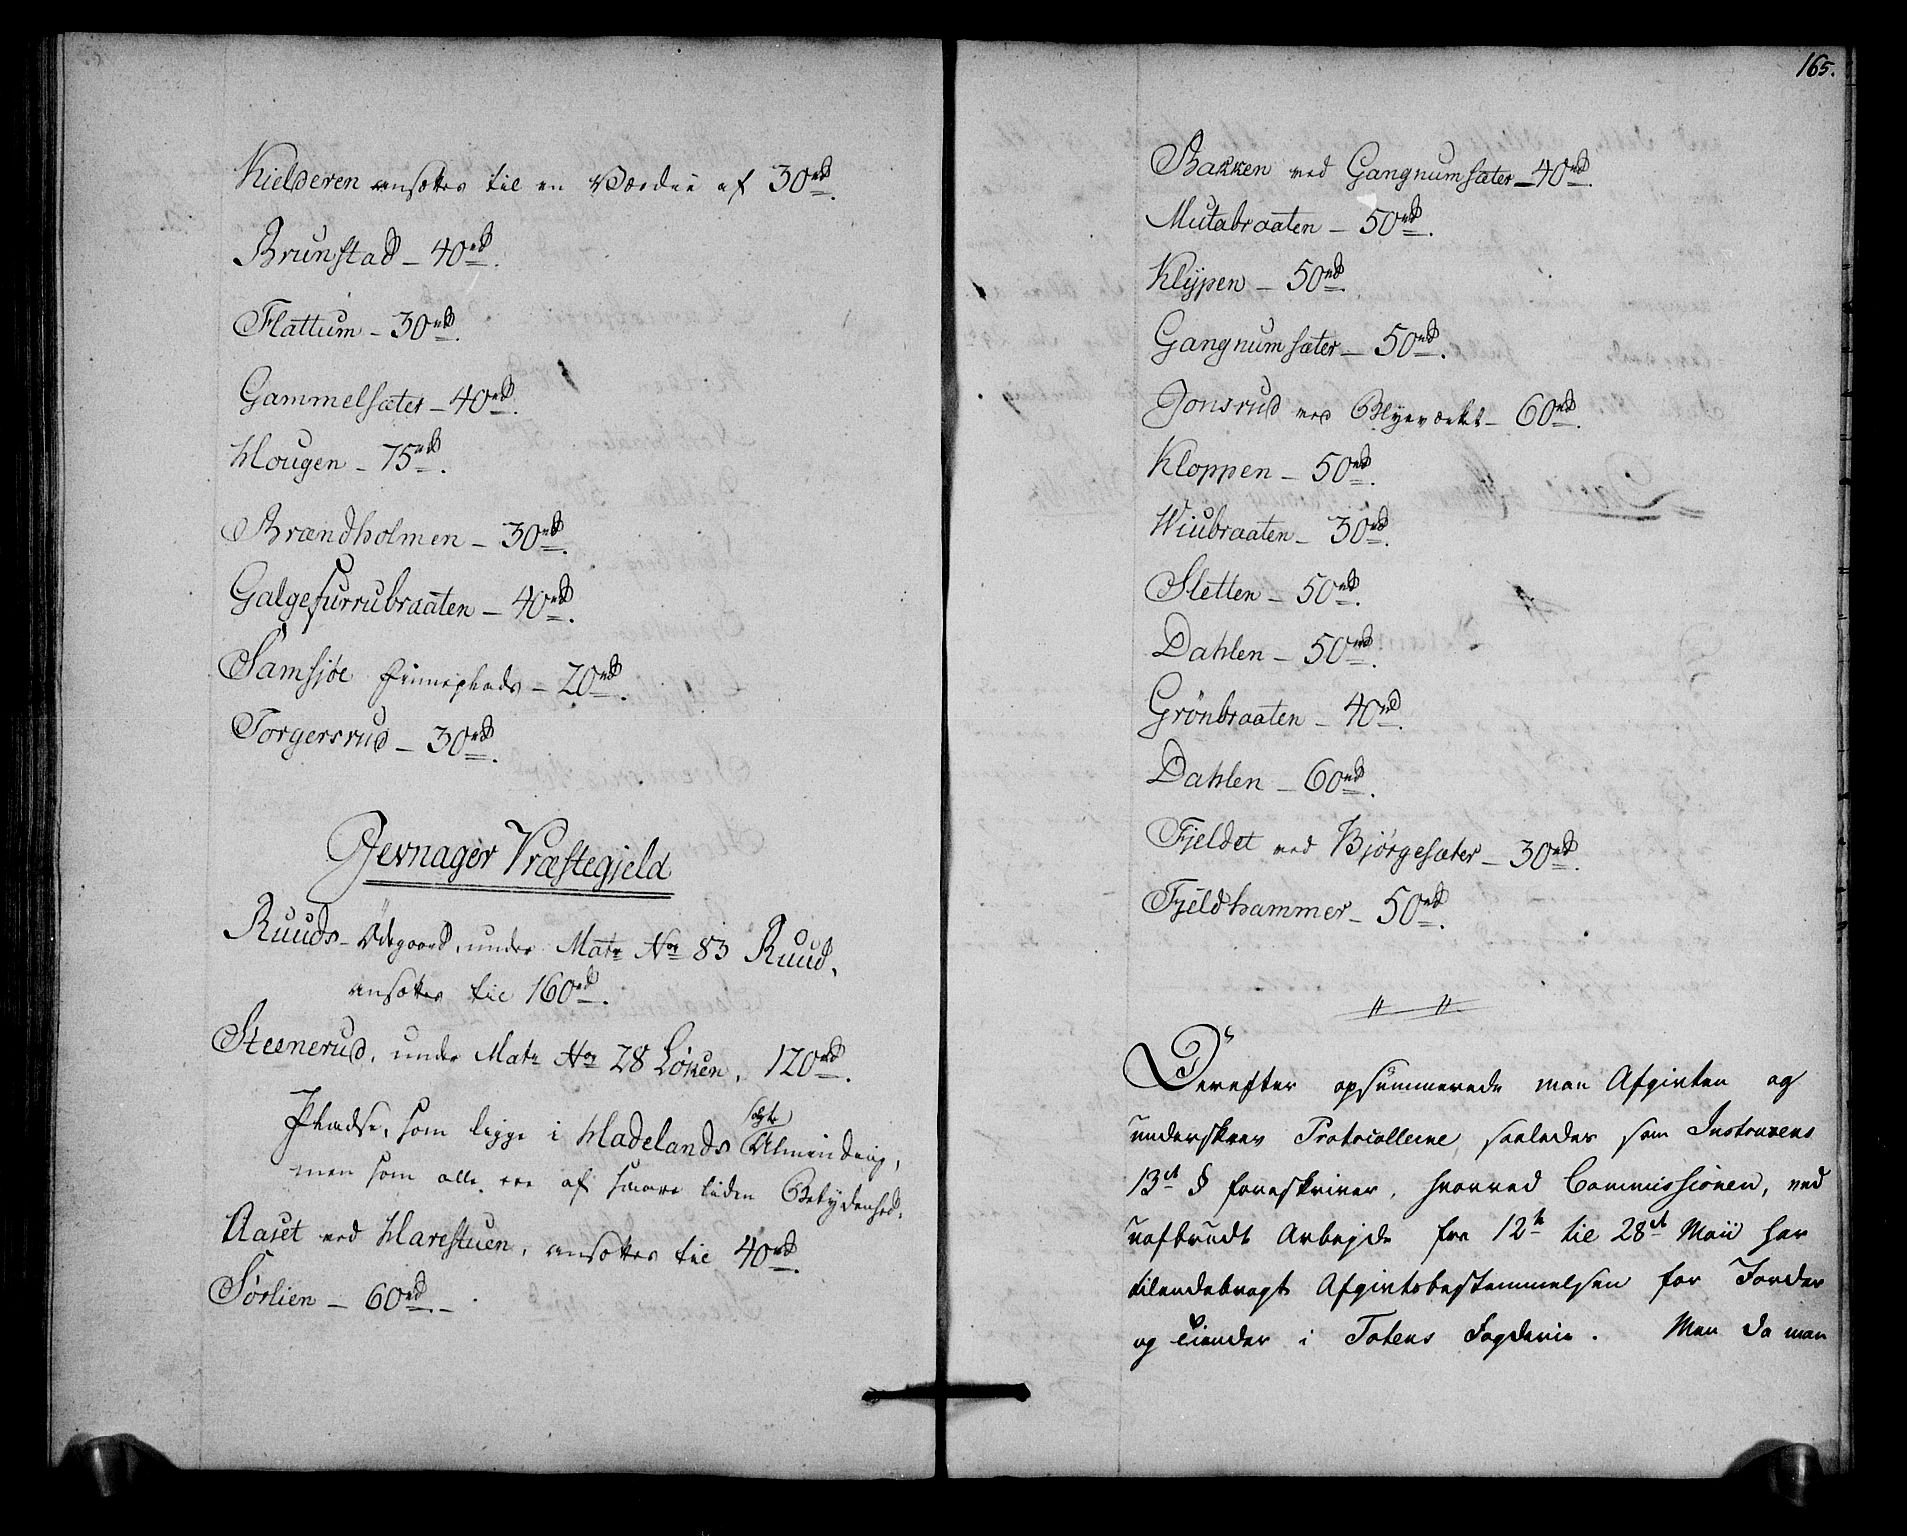 Kielderen ansættes til en Værdie af 30 rd.
Brunstad - 40 rd.
Flattum - 30 rd.
Gammelsæter - 40 rd.
Hougen - 75 rd.
Brændholmen - 30 rd.
Galgefurrubraaten - 40 rd.
Samsjøe Finneplads - 20 rd.
Torgersrud - 30 rd.
Jevnager Præstegjeld
Ruuds-Ödegaard, under Matr No 83 Ruud,
ansættes til 160 rd.
Steenerud, under Matr No 28 Løken, 120 rd.
Pladse, som ligge i Hadelands solgte Almindeing,
men som alle ere af saare liden Betydenhed.
Aaset ved Harestuen, ansættes til 40 rd.
Sørlien - 60 rd. -
165.
Bakken ved Gangnumsæter - 40 rd.
Mutabraaten - 50 rd.
Klypen - 50 rd.
Gangnumsæter - 50 rd.
Jonsrud ved Blyeværket - 60 rd.
Kloppen - 50 rd.
Wiubraaten - 30 rd.
Sletten - 50 rd.
Dahlen - 50 rd.
Grönbraaten - 40 rd.
Dahlen - 60 rd.
Fjeldet ved Bjørgesæter - 30 rd.
Fjeldhammer - 50 rd.
Derefter opsummerede man Afgivten og
underskrev Protocollerne, saaledes som Instruxens
13de § foreskriver, hvorved Commissionen, ved
uafbrudt Arbejde fra 12te til 28de Maii har
tilendebragt Afgivtsbestemmelsen for Jorder
og Tiender i Totens Fogderie. Men da man